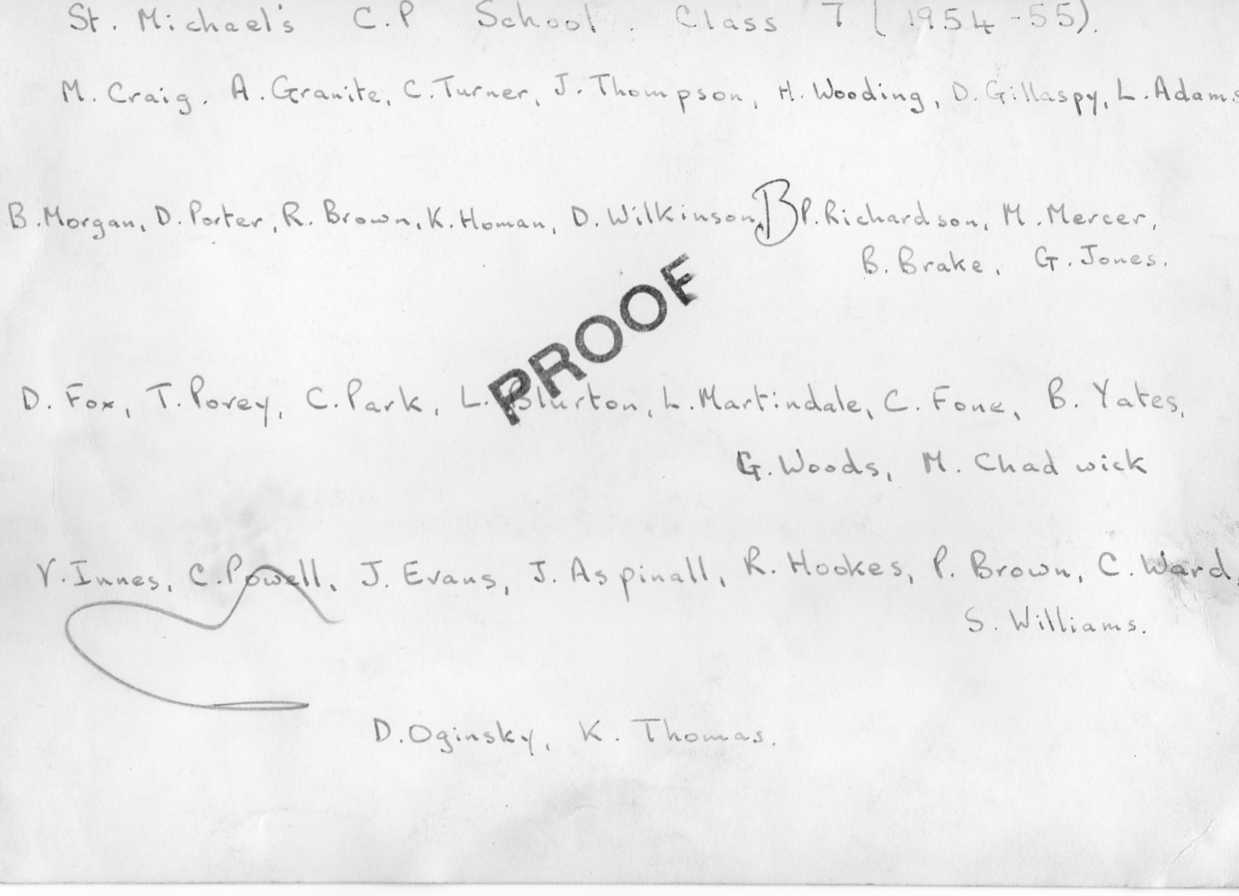 St. Michael's C.P School. Class 7 (1954-55).
M. Craig. A. Granite, C. Turner, J. Thompson, H. Wooding, D. Gillaspy, L. Adams
B. Morgan, D. Porter, R. Brown, K. Homan, D. Wilkinson, B P. Richardson, M. Mercer,
B. Brake, G. Jones.
PROOF
D. Fox, T. Povey, C. Park, L. Blurton, L. Martindale, C. Fone, B. Yates,
G. Woods, M. Chadwick
V. Innes, C. Powell, J. Evans, J. Aspinall, R. Hookes, P. Brown, C. Ward,
S. Williams.
D. Oginsky, K. Thomas.